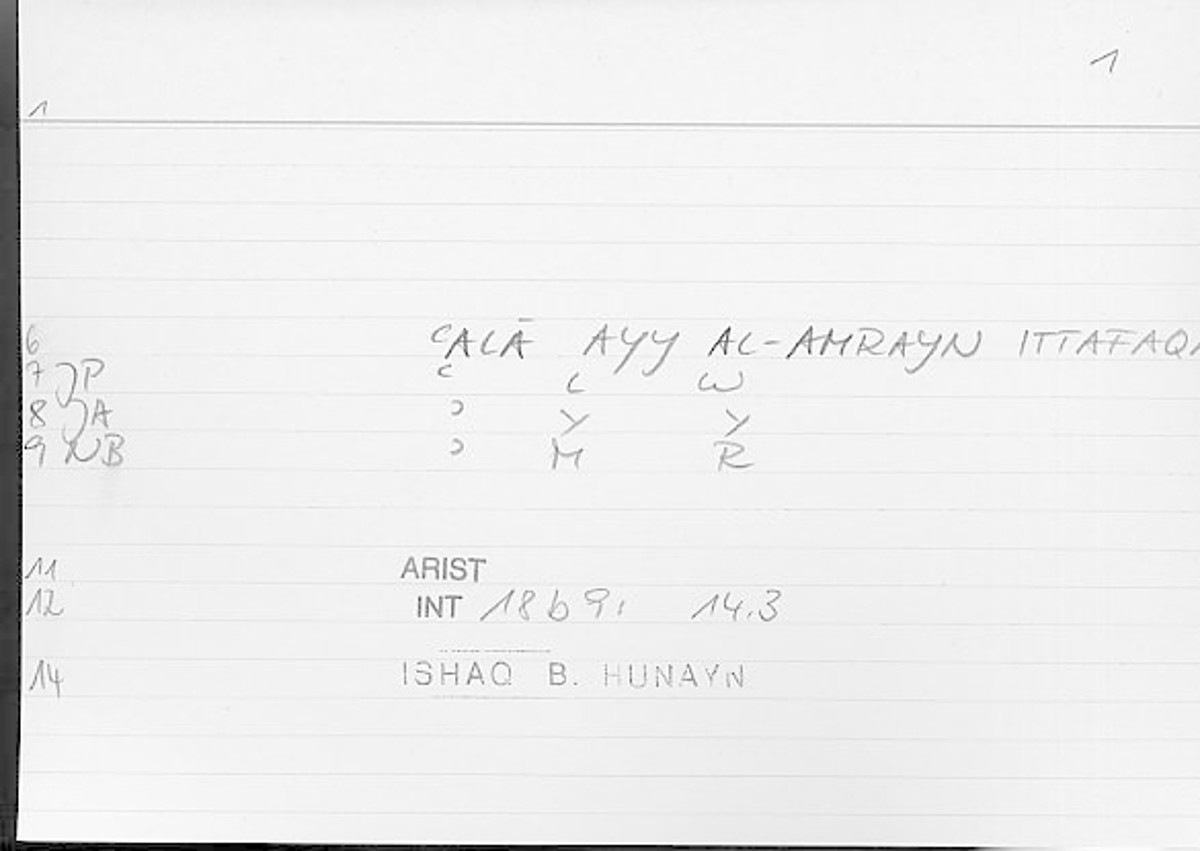 1
1
6 ʿALĀ AYY AL-AMRAYN ITTAFAQA
7 JP ʿ L W
8 JA ʾ Y Y
9 NB ʾ M R
11 ARIST
12 INT 18 b 9, 14.3
14 ISHAQ B. HUNAYN